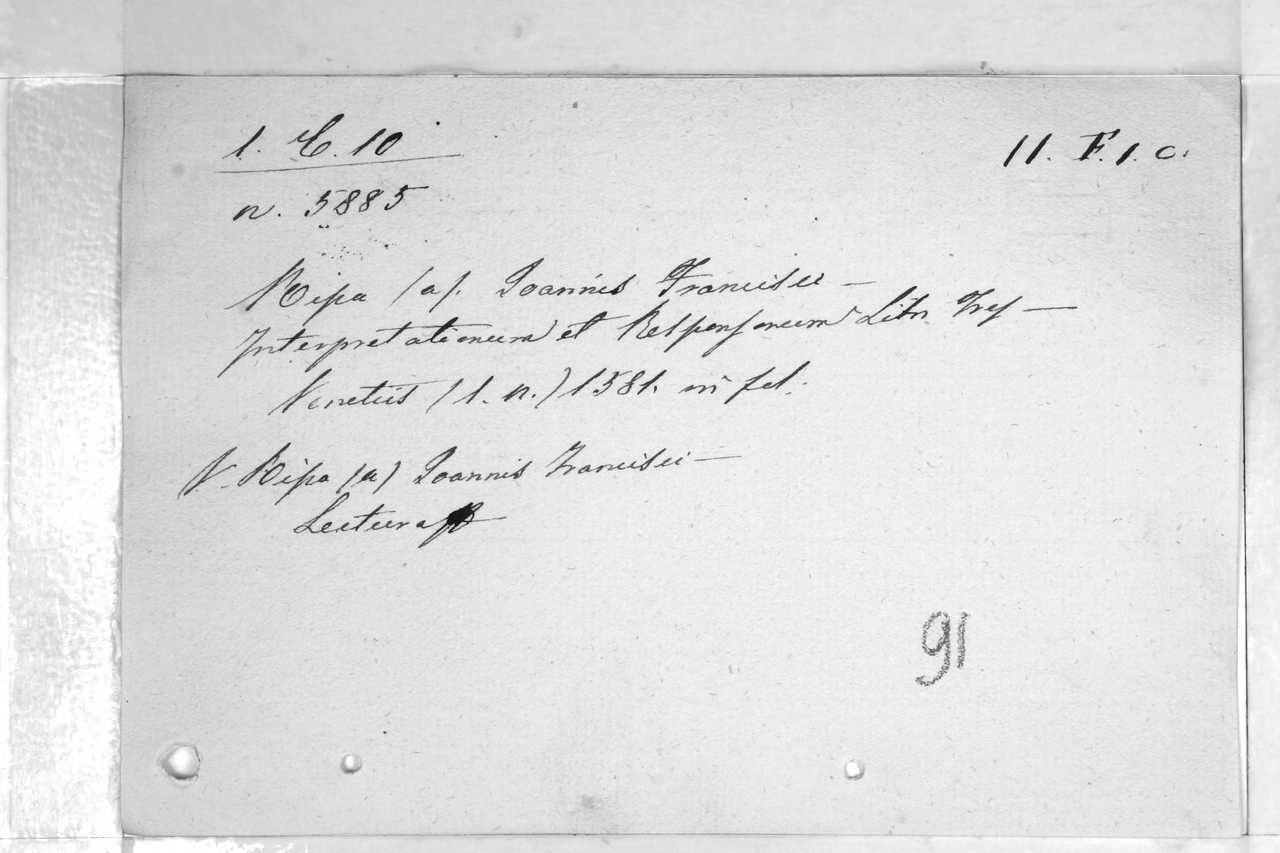 1. C. 10
11. F. 1. c.
n. 5885
Ripa (a). Joannis Francisci —
Interpretationum et Responsorum Libri Tres —
Venetiis (l. n.) 1581. in fol.
V. Ripa (a) Joannis Francisci —
Lectura
91